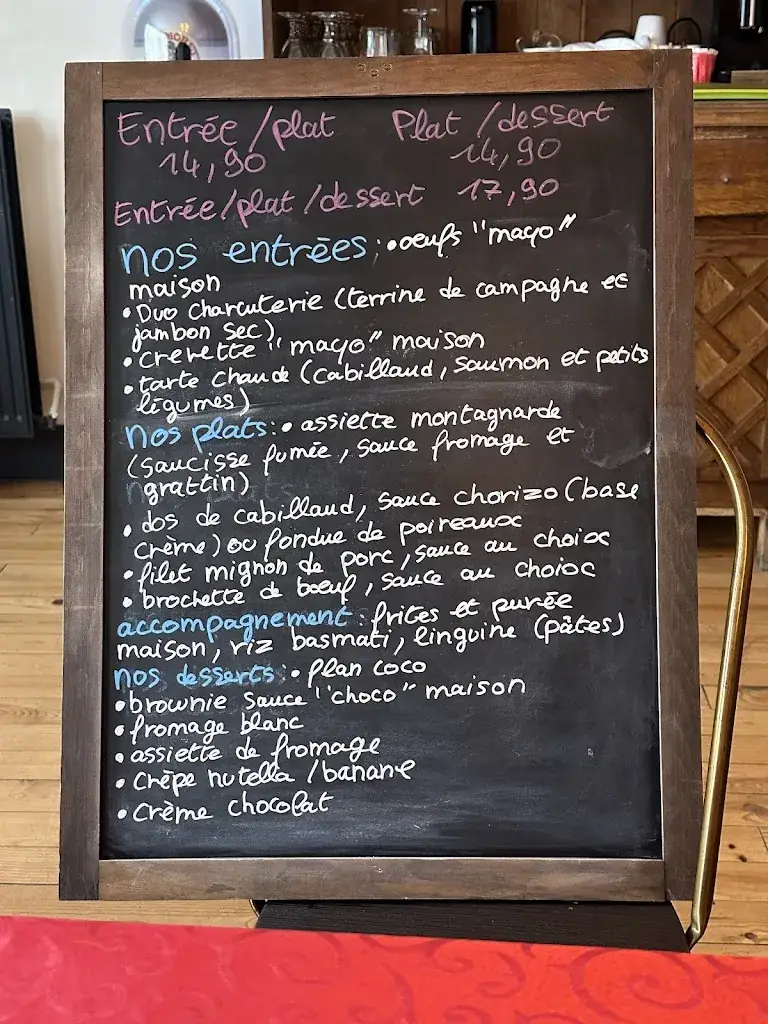 Entrée/plat Plat/dessert
14,90 14,90
Entrée/plat/dessert 17,90
nos entrées : • oeufs "mayo"
maison
• Duo Charcuterie (terrine de campagne et
jambon sec)
• crevette "mayo" maison
• tarte chaude (Cabillaud, saumon et petits
légumes)
nos plats : • assiette montagnarde
(saucisse fumée, sauce fromage et
grattin)
• dos de cabillaud, sauce chorizo (base
crème) ou fondue de poireaux
• filet mignon de porc, sauce au choix
• brochette de bœuf, sauce au choix
accompagnement : frites et purée
maison, riz basmati, linguine (pâtes)
nos desserts : • flan coco
• brownie sauce "choco" maison
• fromage blanc
• assiette de fromage
• crêpe nutella /banane
• crème chocolat